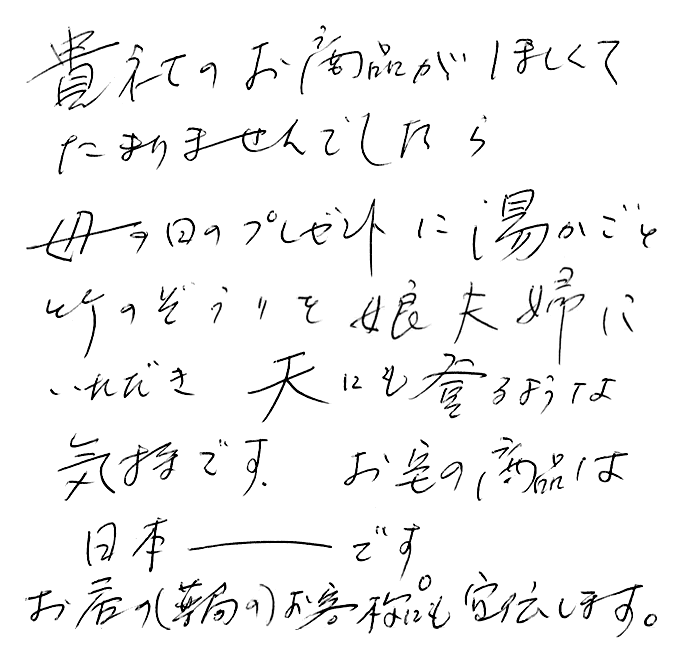 貴社のお商品がほしくて
たまりませんでしたら
母の日のプレゼントに湯かごと
竹のぞうりを娘夫婦に
いただき 天にも登るような
気持です. お宅の商品は
日本――です
お店の(薬局の)お客様にも宣伝します。